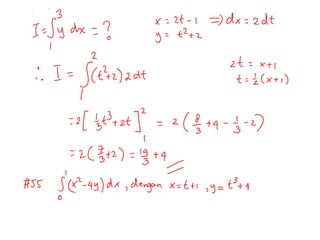 I = ∫₁³ y dx = ?
x = 2t - 1 ⇒ dx = 2dt
y = t² + 2
2t = x+1
t = ½(x+1)
∴ I = ∫₁² (t²+2) 2dt
= 2 [ ⅓t³ + 2t ]₁² = 2 ( 8/3 + 4 - 1/3 - 2 )
= 2 ( 7/3 + 2 ) = 14/3 + 4
#55 ∫₀¹ (x² - 4y) dx, dengan x = t+1, y = t³+4